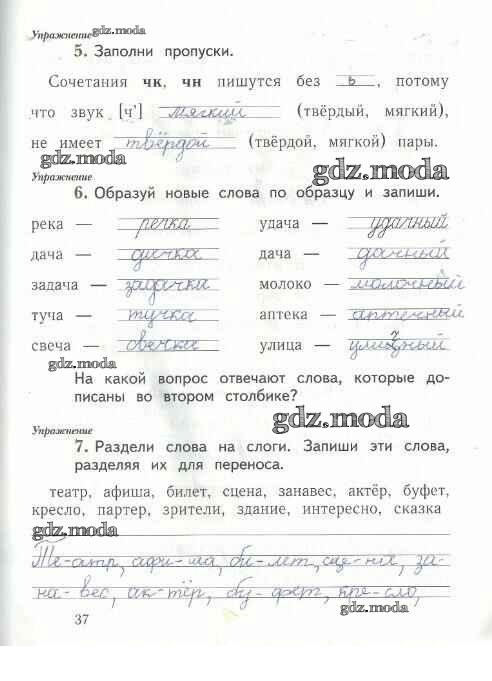 Упражнение gdz.moda
5. Заполни пропуски.
Сочетания чк, чн пишутся без ь, потому
что звук [ч'] мягкий (твёрдый, мягкий),
не имеет твёрдой (твёрдой, мягкой) пары.
gdz.moda gdz.moda
Упражнение
6. Образуй новые слова по образцу и запиши.
река — речка удача — удачный
дача — дачка дача — дачный
задача — задачка молоко — молочный
туча — тучка аптека — аптечный
свеча — свечка улица — уличный
gdz.moda
На какой вопрос отвечают слова, которые до-
писаны во втором столбике?
gdz.moda
Упражнение
7. Раздели слова на слоги. Запиши эти слова,
разделяя их для переноса.
театр, афиша, билет, сцена, занавес, актёр, буфет,
кресло, партер, зрители, здание, интересно, сказка
gdz.moda
Те-атр, афи-ша, би-лет, сце-на, за-
на-вес, ак-тёр, бу-фет, кре-сло,
gdz.moda
37